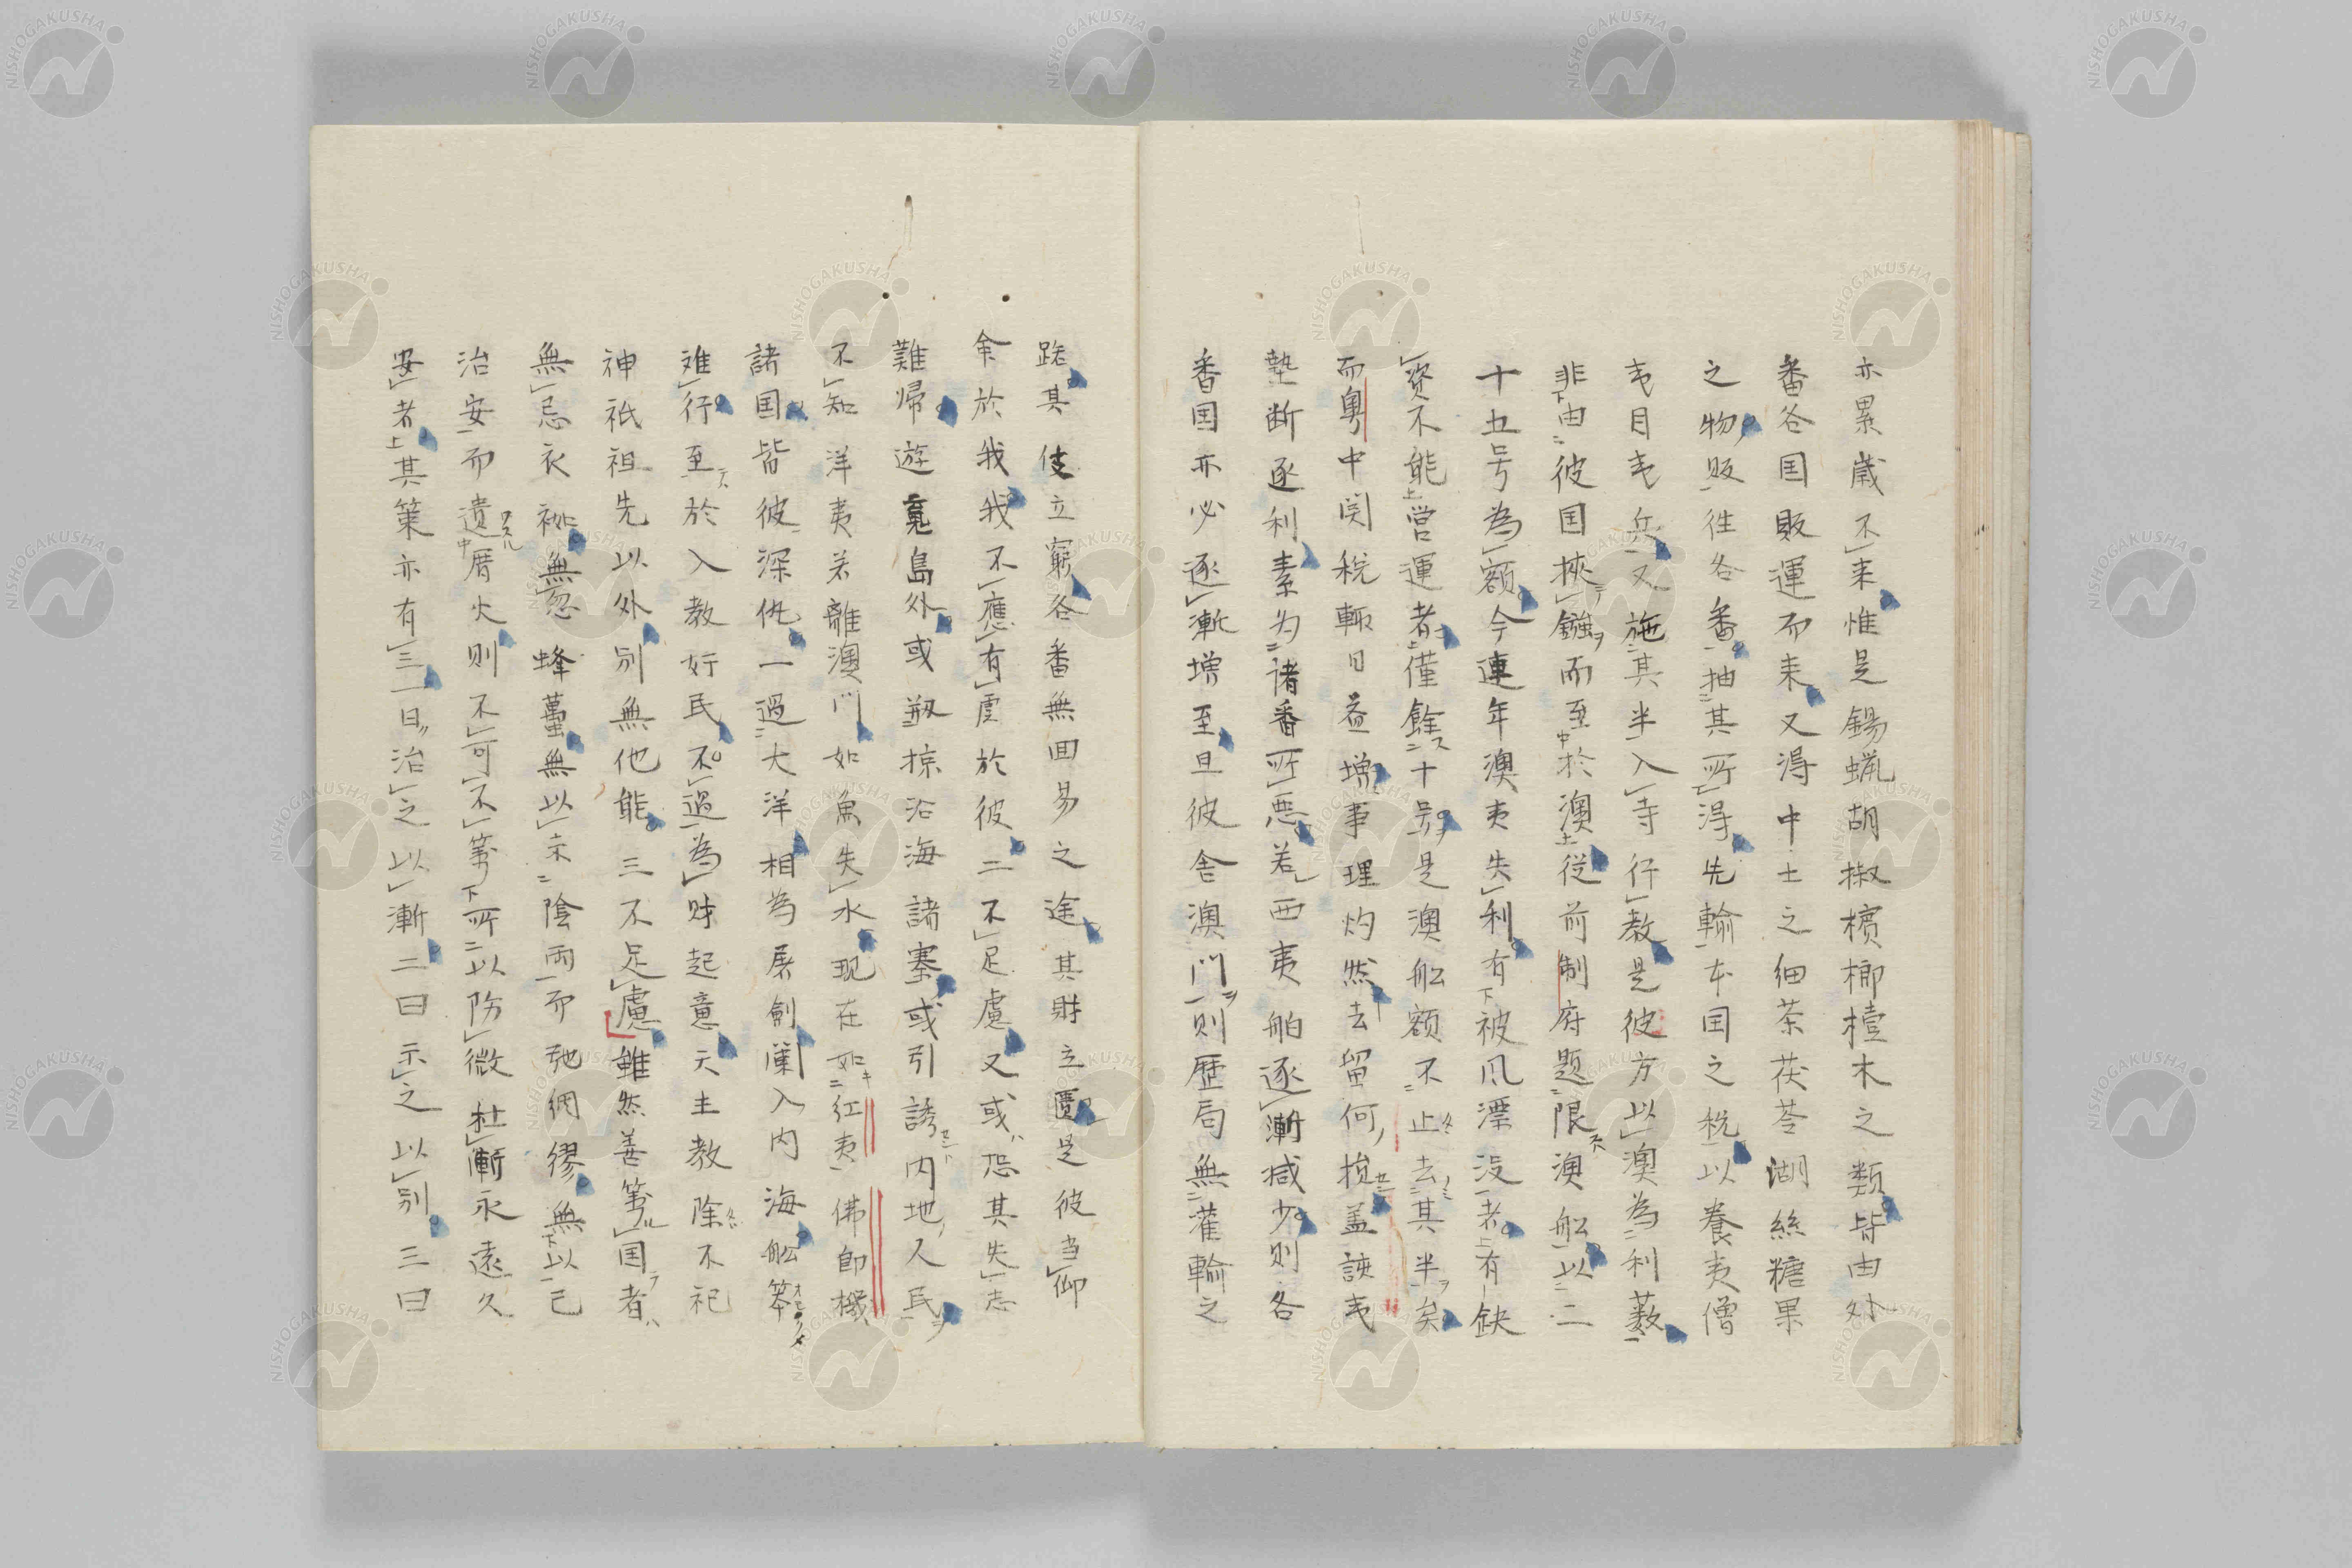 亦累歳不来惟是錫蝋胡椒檳榔檀木之類皆由外
番各国販運而来又得中土之細茶茯苓湖絲糖果
之物販往各番抽其所得先輸本国之税以養夷僧
夷目夷兵又施其半入寺行教是彼方以澳為利薮
非由彼国挾鏹而至於澳從前制府題限澳舩以二
十五号為額今連年澳夷失利有被风漂没者有缺
資不能営運者僅餘十号是澳舩額不止去其半矣
而粤中関税輙日益増事理灼然去留何損盖諌夷
塾断逐利素为諸番所悪若西夷舶逐漸減少則各
番国亦必逐漸増至旦彼舎澳門則歴局無灌輸之
踪其伎立窮各番無回易之途其財立匱是彼当仰
余於我我不應有虞於彼二不足慮又或恐其失志
難帰遊竟島外或刼掠沿海諸寨或引誘内地人民
不知洋夷若離澳門如魚失水现在如紅夷佛郎機
諸国皆彼深仇一過大洋相為屠劊闌入内海舩笨
难行至於入教奸民不過為財起意天主教除不祀
神祇祖先以外別無他能三不足慮雖然善筹国者
無忌衣袽無忽蜂蠆無以示陰雨而弛綢繆無以已
治安而遺厝火則不可不筹所以防微杜漸永遠久
安者其策亦有三一曰治之以漸二曰示之以別三曰
NISHOGAKUSHA